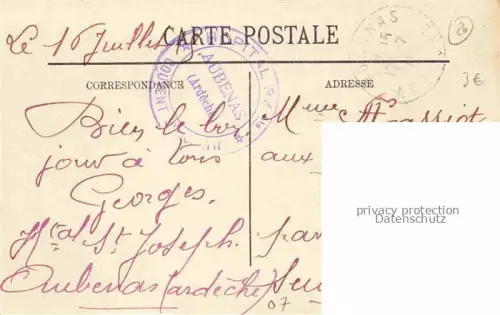 Le 16 Juillet
CARTE POSTALE
CORRESPONDANCE
ADRESSE
HOPITAL
COUVENT
AUBENAS
(Ardèche)
NAS
15
7
20
3€
Bien le bonjour à tous
Georges.
Hal St Joseph.
Aubenas (ardèche)
Mme
aux
par
07
privacy protection
Datenschutz